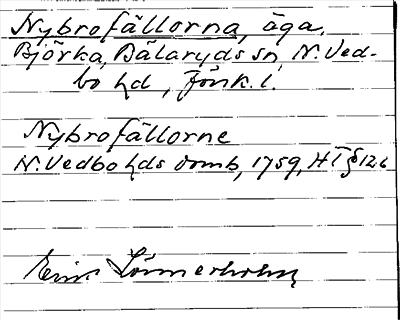 Nybrofällorna, äga.
Björka, Bälaryds sn, N. Ved-
bo hd, Jönk. l.
Nybrofällorne
N. Vedbo hds domb, 1759, HT § 126
Erik Lönnerholm